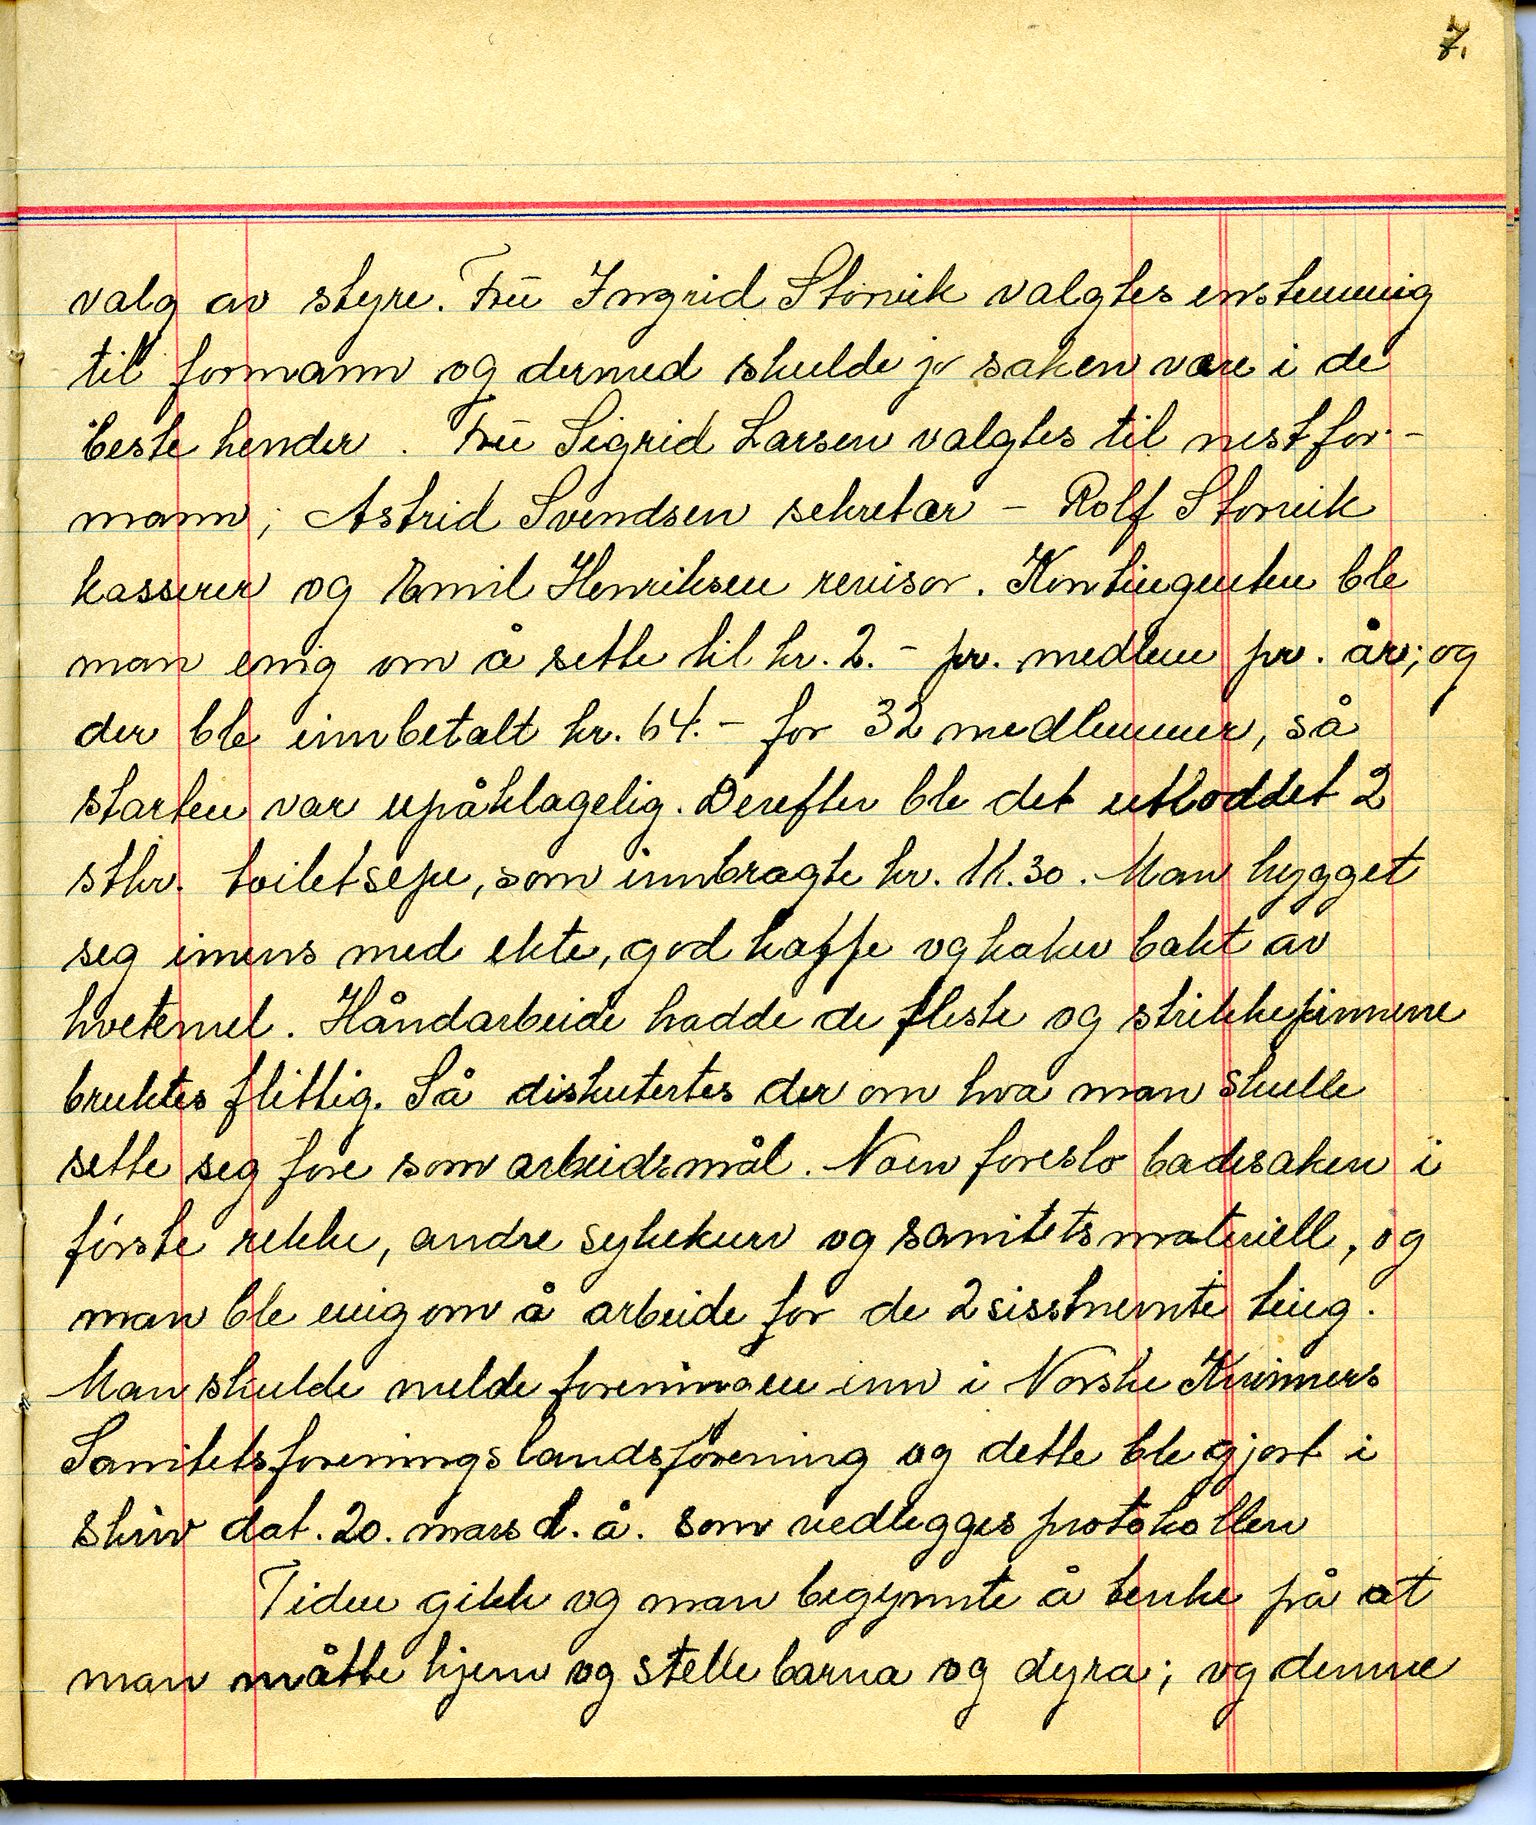 7.
valg av styre. Frū Ingrid Storvik valgtes enstemmig
til formann og dermed skulde jo saken være i de
beste hender. Frū Sigrid Larsen valgtes til nestfor-
mann; Astrid Svendsen sekretær - Rolf Storvik
kasserer og Emil Henriksen revisor. Kontingenten ble
man enig om å sette til kr. 2.- pr. medlem pr. år; og
der ble innbetalt kr. 64.- for 32 medlemmer, så
starten var upåklagelig. Derefter ble det utloddet 2
stkr. toiletsepe, som innbragte kr. 11.30. Man hygget
seg imens med ekte, god kaffe og kaker bakt av
hvetemel. Håndarbeide hadde de fleste og strikkepinnene
bruktes flittig. Så diskutertes der om hva man skulle
sette seg fore som arbeidsmål. Noen foreslo badesaken i
første rekke, andre sykekurv og sanitetsmateriell, og
man ble enig om å arbeide for de 2 sisstnevnte ting.
Man skulde melde foreningen inn i Norske Kvinners
Sanitetsforenings landsforening og dette ble gjort i
skriv dat. 20. mars d. å. som vedlegges protokollen
Tiden gikk og man begynnte å tenke på at
man måtte hjem og stelle barna og dyra; og denne